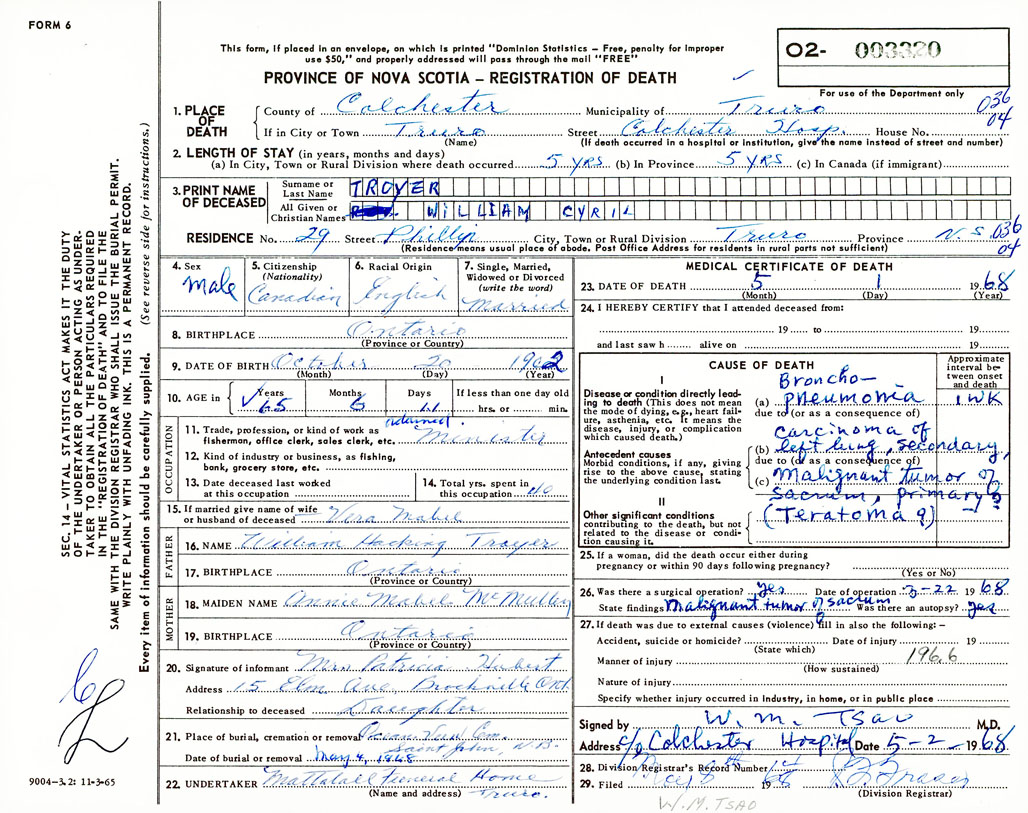 FORM 6
This form, if placed in an envelope, on which is printed "Dominion Statistics – Free, penalty for improper
use $50," and properly addressed will pass through the mail "FREE"
02- 003320
For use of the Department only
PROVINCE OF NOVA SCOTIA – REGISTRATION OF DEATH
SEC. 14 – VITAL STATISTICS ACT MAKES IT THE DUTY
OF THE UNDERTAKER OR PERSON ACTING AS UNDER-
TAKER TO OBTAIN ALL THE PARTICULARS REQUIRED
IN THE "REGISTRATION OF DEATH" AND TO FILE THE
SAME WITH THE DIVISION REGISTRAR WHO SHALL ISSUE THE BURIAL PERMIT.
WRITE PLAINLY WITH UNFADING INK. THIS IS A PERMANENT RECORD.
Every item of information should be carefully supplied. (See reverse side for instructions.)
1. PLACE OF DEATH County of Colchester Municipality of Truro 036
If in City or Town Truro Street Colchester Hosp. House No. 04
(Name) (If death occurred in a hospital or institution, give the name instead of street and number)
2. LENGTH OF STAY (in years, months and days)
(a) In City, Town or Rural Division where death occurred 5 YRS (b) In Province 5 YRS (c) In Canada (if immigrant)
3. PRINT NAME OF DECEASED Surname or Last Name TROYER
All Given or Christian Names WILLIAM CYRIL
RESIDENCE No. 29 Street Phillip City, Town or Rural Division Truro Province N.S. 036
(Residence means usual place of abode. Post Office Address for residents in rural parts not sufficient) 04
4. Sex Male
5. Citizenship (Nationality) Canadian
6. Racial Origin English
7. Single, Married, Widowed or Divorced (write the word) Married
8. BIRTHPLACE Ontario
(Province or Country)
9. DATE OF BIRTH October 20 1902
(Month) (Day) (Year)
10. AGE in Years 65 Months 6 Days 11 If less than one day old hrs. or min.
OCCUPATION
11. Trade, profession, or kind of work as fisherman, office clerk, sales clerk, etc. ordained Minister
12. Kind of industry or business, as fishing, bank, grocery store, etc.
13. Date deceased last worked at this occupation
14. Total yrs. spent in this occupation 40
15. If married give name of wife or husband of deceased Vera Mabel
FATHER
16. NAME William Hacking Troyer
17. BIRTHPLACE Ontario
(Province or Country)
MOTHER
18. MAIDEN NAME Annie Mabel McMullen
19. BIRTHPLACE Ontario
(Province or Country)
20. Signature of informant Mrs Patricia
Address 15 Elm Ave Brockville Ont
Relationship to deceased Daughter
21. Place of burial, cremation or removal Ocean View Cem.
Saint John, N.B.
Date of burial or removal May 4, 1968
22. UNDERTAKER Mattatall Funeral Home
(Name and address) Truro.
9004-3.2: 11-3-65
MEDICAL CERTIFICATE OF DEATH
23. DATE OF DEATH 5 1 1968
(Month) (Day) (Year)
24. I HEREBY CERTIFY that I attended deceased from:
19 to 19
and last saw h alive on 19
CAUSE OF DEATH
Approximate interval between onset and death
I
Disease or condition directly leading to death (This does not mean the mode of dying, e.g., heart failure, asthenia, etc. It means the disease, injury, or complication which caused death.)
(a) Broncho-pneumonia 1 WK
due to (or as a consequence of)
Antecedent causes
Morbid conditions, if any, giving rise to the above cause, stating the underlying condition last.
(b) carcinoma of left lung, secondary,
due to (or as a consequence of)
(c) Malignant tumor of sacrum, primary ?
II
Other significant conditions contributing to the death, but not related to the disease or condition causing it.
(Teratoma ?)
25. If a woman, did the death occur either during
pregnancy or within 90 days following pregnancy?
(Yes or No)
26. Was there a surgical operation? yes Date of operation 3-22 1968
State findings Malignant tumor of sacrum Was there an autopsy? yes
27. If death was due to external causes (violence) fill in also the following: –
Accident, suicide or homicide? Date of injury 19
(State which)
Manner of injury 196.6
(How sustained)
Nature of injury
Specify whether injury occurred in Industry, in home, or in public place
Signed by W. M. Tsao M.D.
Address c/o Colchester Hospital Date 5-2-1968
28. Division Registrar's Record Number
29. Filed May 8th 1968 Fraser
(Division Registrar)
W.M. TSAO